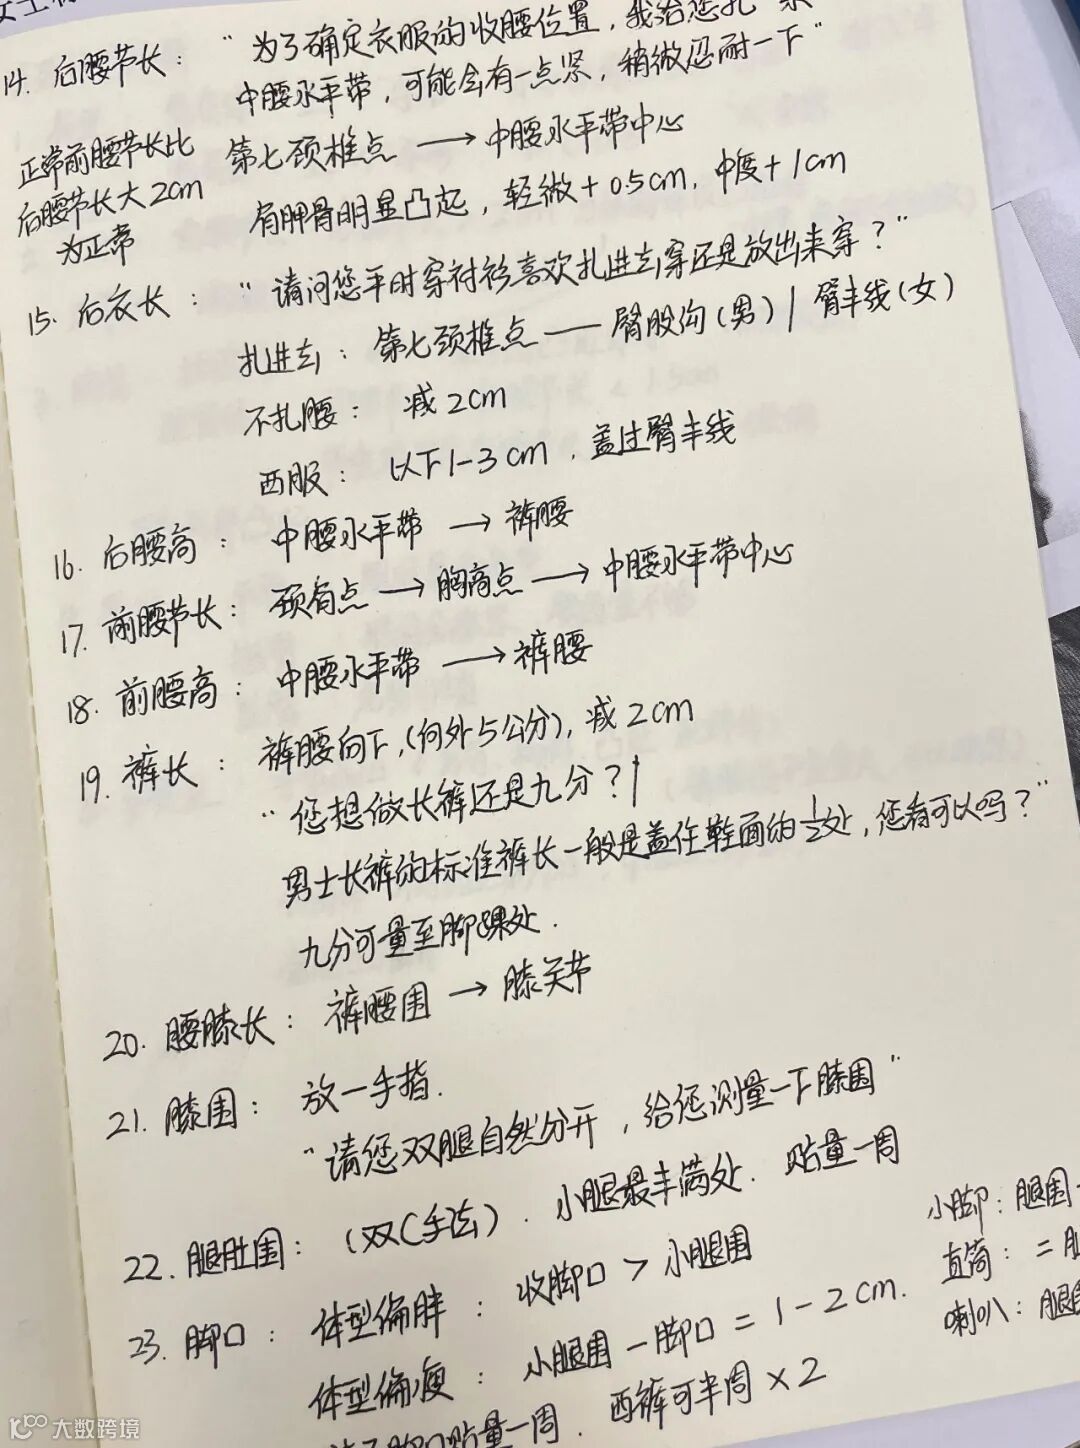 14. 后腰节长： “为了确定衣服的收腰位置，我给您扎
中腰水平带，可能会有一点紧，稍微忍耐一下”
正常前腰节长比
后腰节长大2cm
为正常
第七颈椎点 → 中腰水平带中心
肩胛骨明显凸起，轻微+0.5cm，中度+1cm
15. 后衣长： “请问您平时穿衬衫喜欢扎进去穿还是放出来穿？”
扎进去： 第七颈椎点 — 臀股沟(男) / 臀丰线(女)
不扎腰： 减2cm
西服： 以下1-3cm，盖过臀丰线
16. 后腰高： 中腰水平带 → 裤腰
17. 前腰节长： 颈肩点 → 胸高点 → 中腰水平带中心
18. 前腰高： 中腰水平带 → 裤腰
19. 裤长： 裤腰向下，(向外5公分)，减2cm
“您想做长裤还是九分？
男士长裤的标准裤长一般是盖住鞋面的1/2处，您看可以吗？”
九分可量至脚踝处.
20. 腰膝长： 裤腰围 → 膝关节
21. 膝围： 放一手指.
“请您双腿自然分开，给您测量一下膝围”
22. 腿肚围： (双C手法). 小腿最丰满处. 贴量一周
23. 脚口： 体型偏胖： 收脚口 > 小腿围
体型偏瘦： 小腿围 - 脚口 = 1-2cm.
小脚：腿围
直筒： =
喇叭：腿
脚口贴量一周. 西裤可半周×2
大数跨境